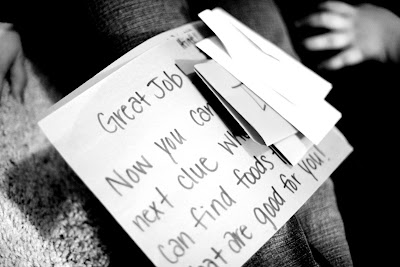 Great Job
Now you can
next clue
can find foods
that are good for you!